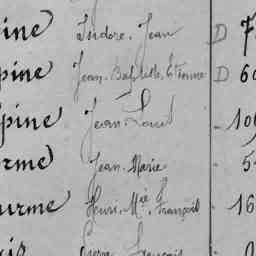 ine Isidore. Jean D 7
pine Jean. Baptiste. Etienne D 60
pine Jean. Paul - 10
rme Jean. Marie - 5
urme Henri. Mie. François - 16
François